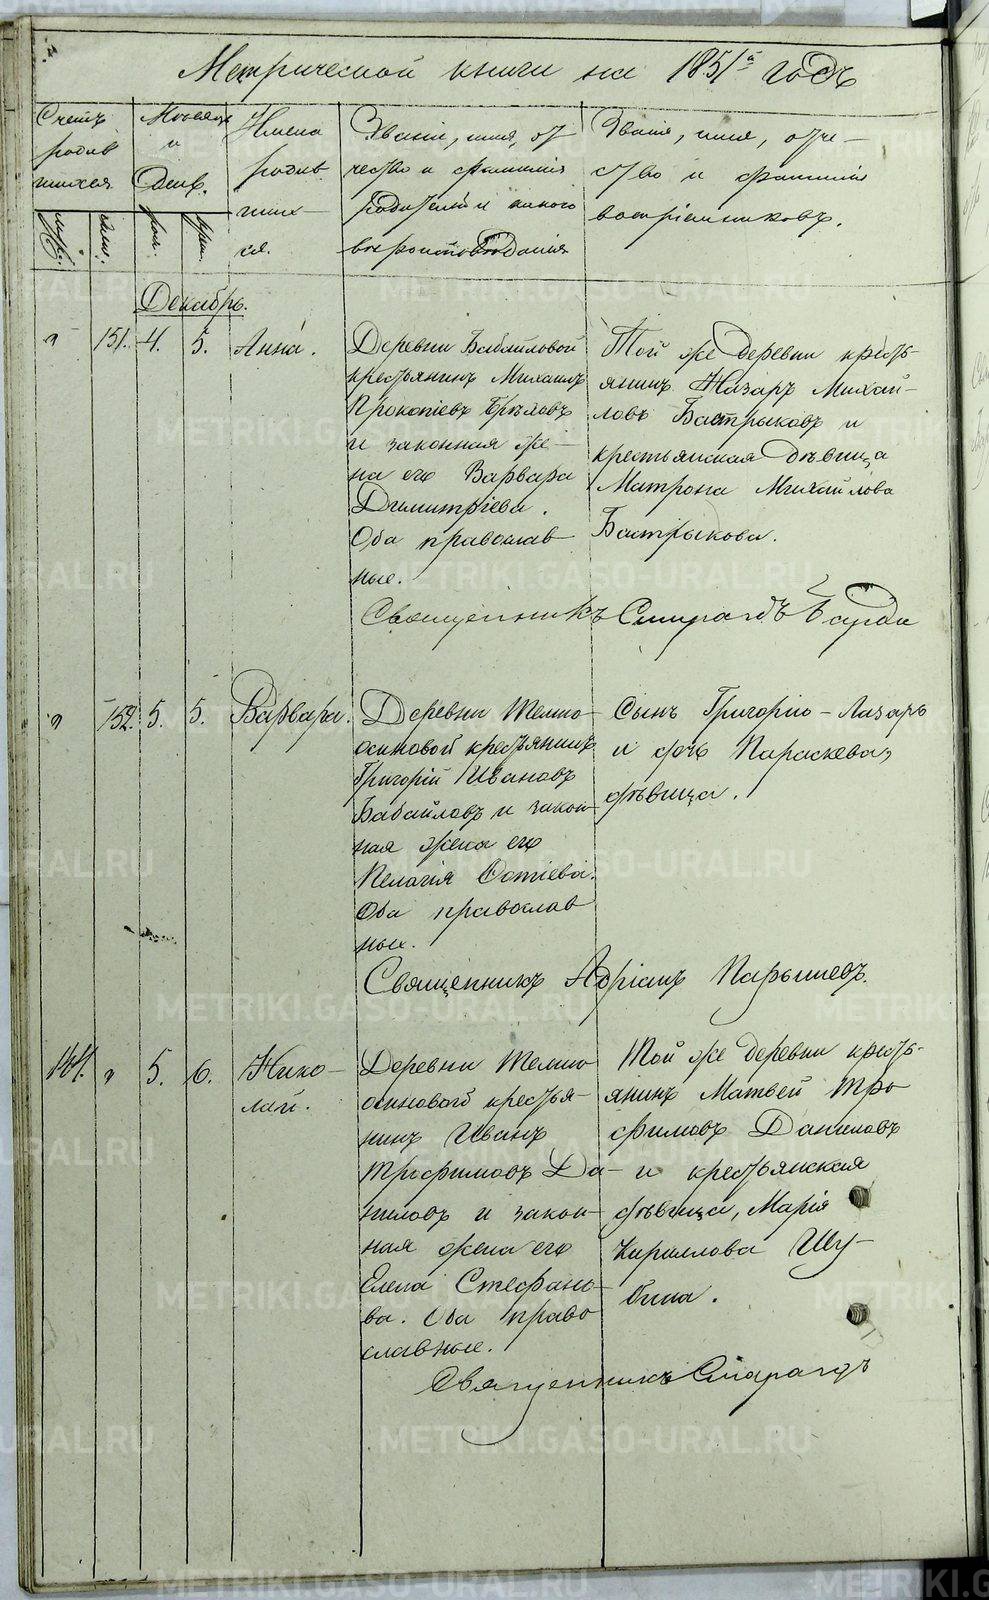 Метрической книги на 1851й годъ
Счетъ родив шихся
муж: жен:
Месяцъ и День.
рож: крещ:
Имена родив шихся.
Званіе, имя, от-
чество и фамилія
родителей и какого
вѣроисповѣданія
Званіе, имя, отче-
ство и фамилія
воспріемниковъ.
Декабрь.
" 151. 4. 5. Анна.
Деревни Бабайловой
крестьянинъ Михаилъ
Прокопіевъ
и законная же-
на его Варвара
Димитріева.
Оба православ
ные.
Той же деревни кресть-
янинъ Назаръ Михай-
ловъ Бастрыковъ и
крестьянская дѣвица
Матрона Михайлова
Бастрыкова.
Священникъ Смарагдъ
" 152. 5. 5. Варвара.
Деревни Темно-
осиновой крестьянинъ
Григорій Ивановъ
Бабайловъ и закон-
ная жена его
Пелагія Фотіева.
Оба православ
ные.
Сынъ Григоріо-Лазарь
и дочь Параскева,
дѣвица.
Священникъ Адріанъ Парышевъ.
164. " 5. 6. Нико-
лай.
Деревни Темно
осиновой крестья-
нинъ Иванъ
Трофимовъ Да-
ниловъ и закон-
ная жена его
Елена Стефано-
ва. Оба право
славные.
Той же деревни кресть-
янинъ Матвей Тро
фимовъ Даниловъ
и крестьянская
дѣвица, Марія
Кириллова Шу-
бина.
Священникъ Смарагдъ
METRIKI.GASO-URAL.RU